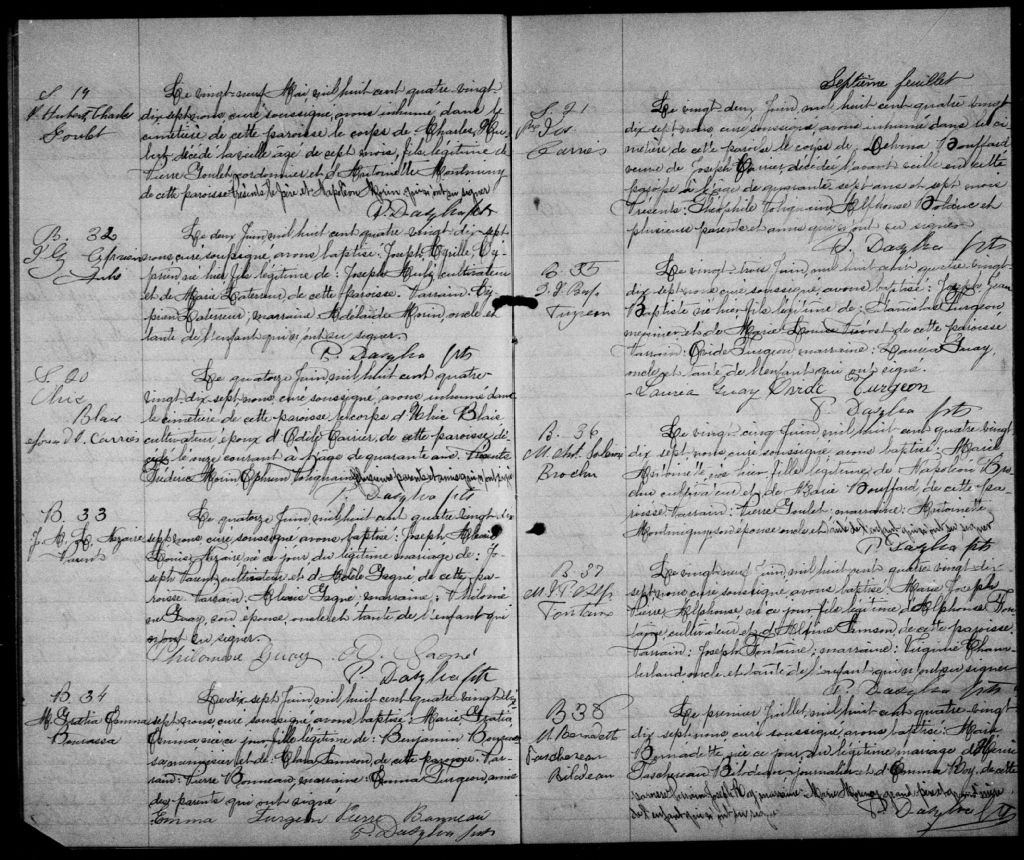 S. 19
Hubert Charles
Goulet
Le vingt-neuf Mai, mil huit cent quatre vingt
dix sept nous, curé soussigné, avons inhumé, dans le
cimetière de cette paroisse le corps de Charles, Hu-
bert décédé la veille âgé de sept mois, fils légitime de
Pierre Goulet cordonnier et d'Antoinette Montminy
de cette paroisse Présents le père et Napoléon Morin qui n'ont su signer
P. Dazylva ptr
B. 32
J. Cy. Cyprien
Le deux Juin mil huit cent quatre vingt dix sept
nous curé soussigné, avons baptisé: Joseph, Cyrille, Cy-
prien né hier fils légitime de: Joseph cultivateur
et de Marie Laterreur, de cette paroisse. Parrain: Cy-
prien Laterreur, marraine: Adélaide Morin, oncle et
tante de l'enfant qui n'ont su signer.
P. Dazylva ptr
S. 20
Ulric
Blais
époux d'O. Carrier
Le quatorze Juin mil huit cent quatre-
vingt dix sept nous, curé soussigné, avons inhumé dans
le cimetière de cette paroisse le corps d'Ulric Blais
cultivateur époux d'Odile Carrier, de cette paroisse, dé-
cédé le onze courant à l'âge de quarante ans. Présents
Fréderic Morin Ephrem plusieurs parents et amis qui n'ont signé
P. Dazylva ptr
B. 33
J. A. L. Nazaire
Le quatorze Juin mil huit cent quatre vingt dix
sept nous, curé soussigné avons baptisé: Joseph Alexis
Louis, Nazaire né ce jour du légitime mariage de: Jo-
seph cultivateur et d'Adèle Gagné, de cette pa-
roisse Parrain: Alexis Gagné marraine: Philomè-
ne Guay, son épouse, oncle et tante de l'enfant qui
n'ont su signer.
Philomene Guay A. Gagné
P. Dazylva ptr
B. 34
M. Gratia Emma
Bourassa
Le dix sept Juin mil huit cent quatre vingt dix
sept nous, curé soussigné, avons baptisé: Marie Gratia,
Emma née ce jour, fille légitime de: Benjamin Bouras-
sa, menuisier et de Elmia Samson, de cette paroisse Par-
rain: Pierre Bonneau, marraine: Emma Turgeon, amis
des parents qui ont signé
Emma Turgeon Pierre Bonneau
P. Dazylva ptr
Septième feuillet
S. 21
Jos
Carrier
Le vingt deux Juin, mil huit cent quatre vingt
dix sept nous, curé soussigné, avons inhumé dans le ci-
metière de cette paroisse le corps de: Delvina Bouffard
veuve de Joseph Carrier, décédée l'avant veille en cette
paroisse à l'âge de quarante sept ans et sept mois
Présents: Théophile Alphonse et
plusieurs parents et amis qui n'ont su signer
P. Dazylva ptr
B. 35
J. J. Bap.
Turgeon
Le vingt-trois Juin, mil huit cent quatre vingt
dix-sept nous curé soussigné, avons baptisé: Joseph Jean
Baptiste né hier fils légitime de: Stanislas Turgeon
meunier et de Marie Louise de cette paroisse
Parrain: Ovide Turgeon, marraine: Lauréa Guay,
oncle et tante de l'enfant qui ont signé.
Laurea Guay Ovide Turgeon
P. Dazylva ptr
B. 36
M. Ant.
Brochu
Le vingt-cinq Juin, mil huit cent quatre vingt
dix-sept nous, curé soussigné avons baptisé: Marie
Antoinette, née hier, fille légitime, de Napoléon Bro-
chu cultivateur et de Marie Bouffard de cette pa-
roisse Parrain: Pierre Goulet, marraine: Antoinette
Montminy son épouse oncle et tante de l'enfant qui n'ont su signer
P. Dazylva ptr
B. 37
M. J. P. Alph
Fontaine
Le vingt neuf Juin, mil huit cent quatre vingt dix-
sept nous, curé soussigné, avons baptisé: Marie Joseph
Pierre Alphonse né ce jour fils légitime d'Alphonse Fon-
taine cultivateur et d'Alphine Samson de cette paroisse
Parrain: Joseph Fontaine; marraine: Virginie Cham-
berland oncle et tante de l'enfant qui n'ont su signer
P. Dazylva ptr
B 38
M. Bernadette
Taschereau
Bilodeau
Le premier Juillet, mil huit cent quatre vingt
dix sept nous, curé soussigné, avons baptisé: Marie
Bernadette née ce jour, du légitime mariage d'Henri
Taschereau Bilodeau journalier et d'Emma Roy, de cette
paroisse Parrain Joseph Roy, marraine: Marie grand-père et grand'mère
de l'enfant qui n'ont su signer
P. Dazylva ptr